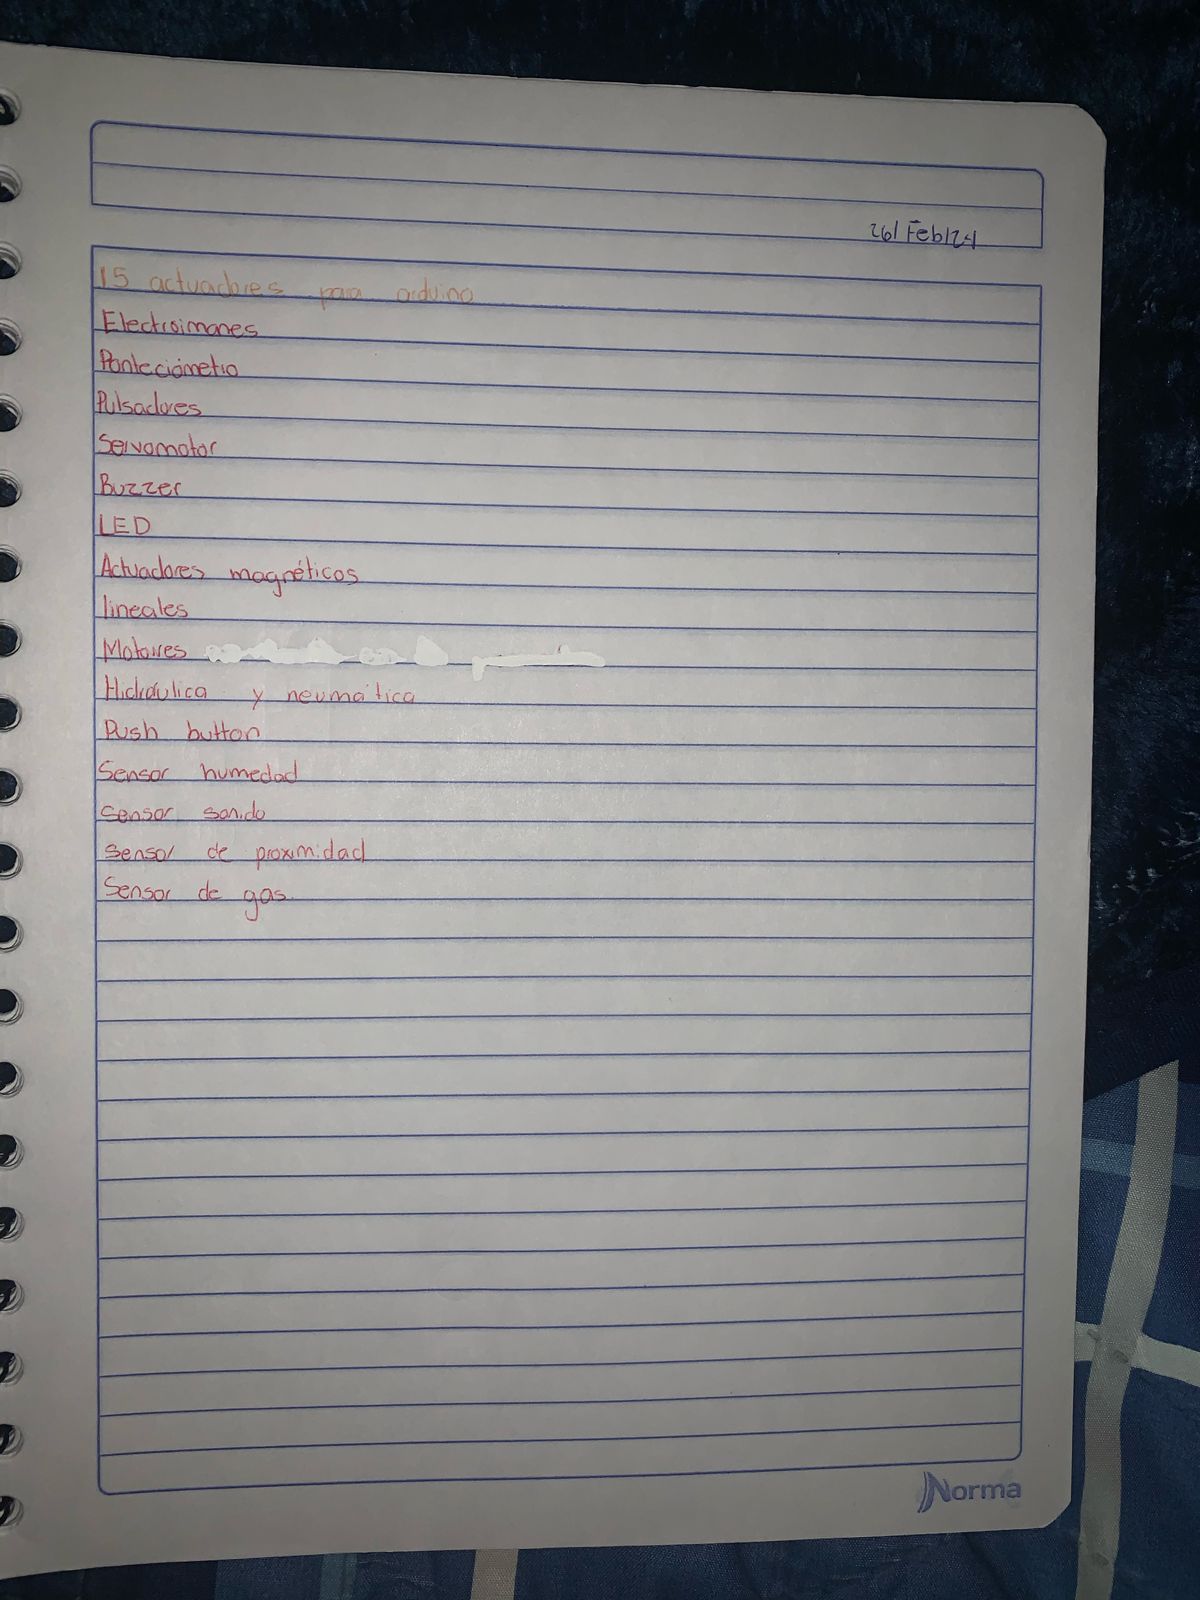 26/Feb/24
15 actuadores para arduino
Electroimanes
Ponteciómetro
Pulsadores
Servomotor
Buzzer
LED
Actuadores magnéticos
lineales
Motores
Hidráulica y neumática
Push button
Sensor humedad
Sensor sonido
Sensor de proximidad
Sensor de gas.
Norma